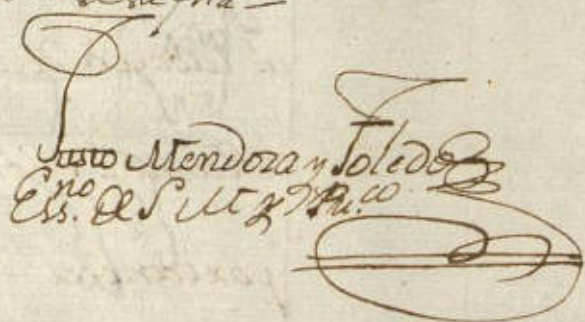 Justo Mendoza y Toledo
Essno. de S M y Puco.